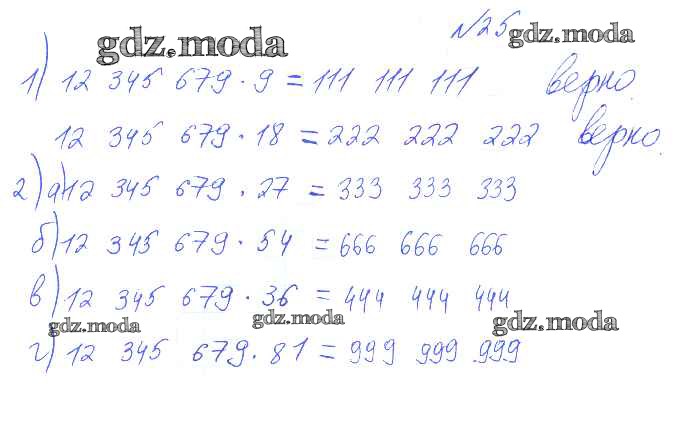 gdz.moda №25 gdz.moda
1) 12 345 679 · 9 = 111 111 111 верно.
12 345 679 · 18 = 222 222 222 верно.
2) а) 12 345 679 · 27 = 333 333 333
б) 12 345 679 · 54 = 666 666 666
в) 12 345 679 · 36 = 444 444 444
gdz.moda gdz.moda gdz.moda
г) 12 345 679 · 81 = 999 999 999